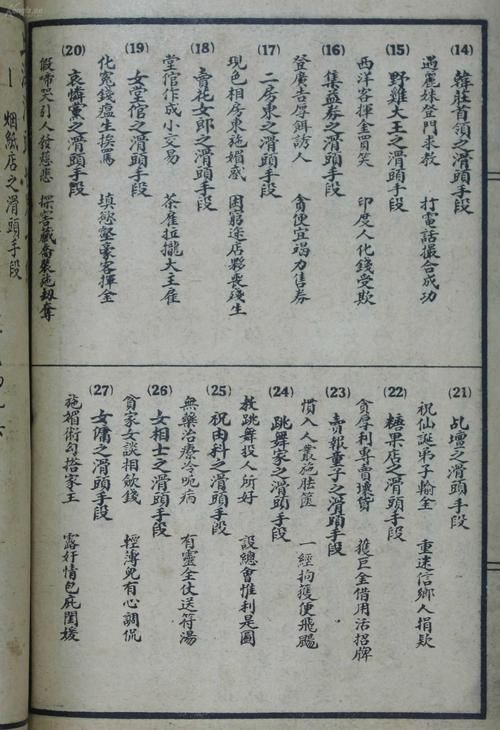 (14) 韓莊首領之滑頭手段
遇麗姝登門求教 打電話撮合成功
(15) 野雞大王之滑頭手段
西洋客揮金買笑 印度人化錢受欺
(16) 集益券之滑頭手段
登廣告厚餌誘人 貪便宜竭力售券
(17) 二房東之滑頭手段
現色相房東施媚惑 困窮途店夥喪殘生
(18) 賣花女郎之滑頭手段
堂倌作成小交易 茶雇拉攏大王雇
(19) 女堂倌之滑頭手段
化冤錢瘟生挨罵 填慾壑豪客揮金
(20) 哀憐黨之滑頭手段
假啼哭引人發慈悲 探客藏奮裝施劫奪
(21) 乩壇之滑頭手段
祝仙誕弟子輸金 重迷信鄉人捐欵
(22) 糖果店之滑頭手段
貪厚利專賣壞貨 獲巨金借用活招牌
(23) 賣報童子之滑頭手段
慣入人叢施胠篋 一經拘獲便飛颺
(24) 跳舞家之滑頭手段
教跳舞投人所好 設總會惟利是圖
(25) 祝由科之滑頭手段
無藥治療冷呃病 有靈全仗送符湯
(26) 女相士之滑頭手段
貧家女談相斂錢 輕薄兒有心調侃
(27) 女傭之滑頭手段
施媚術勾搭家主 露奸情包庇閨媛
烟紙店之滑頭手段